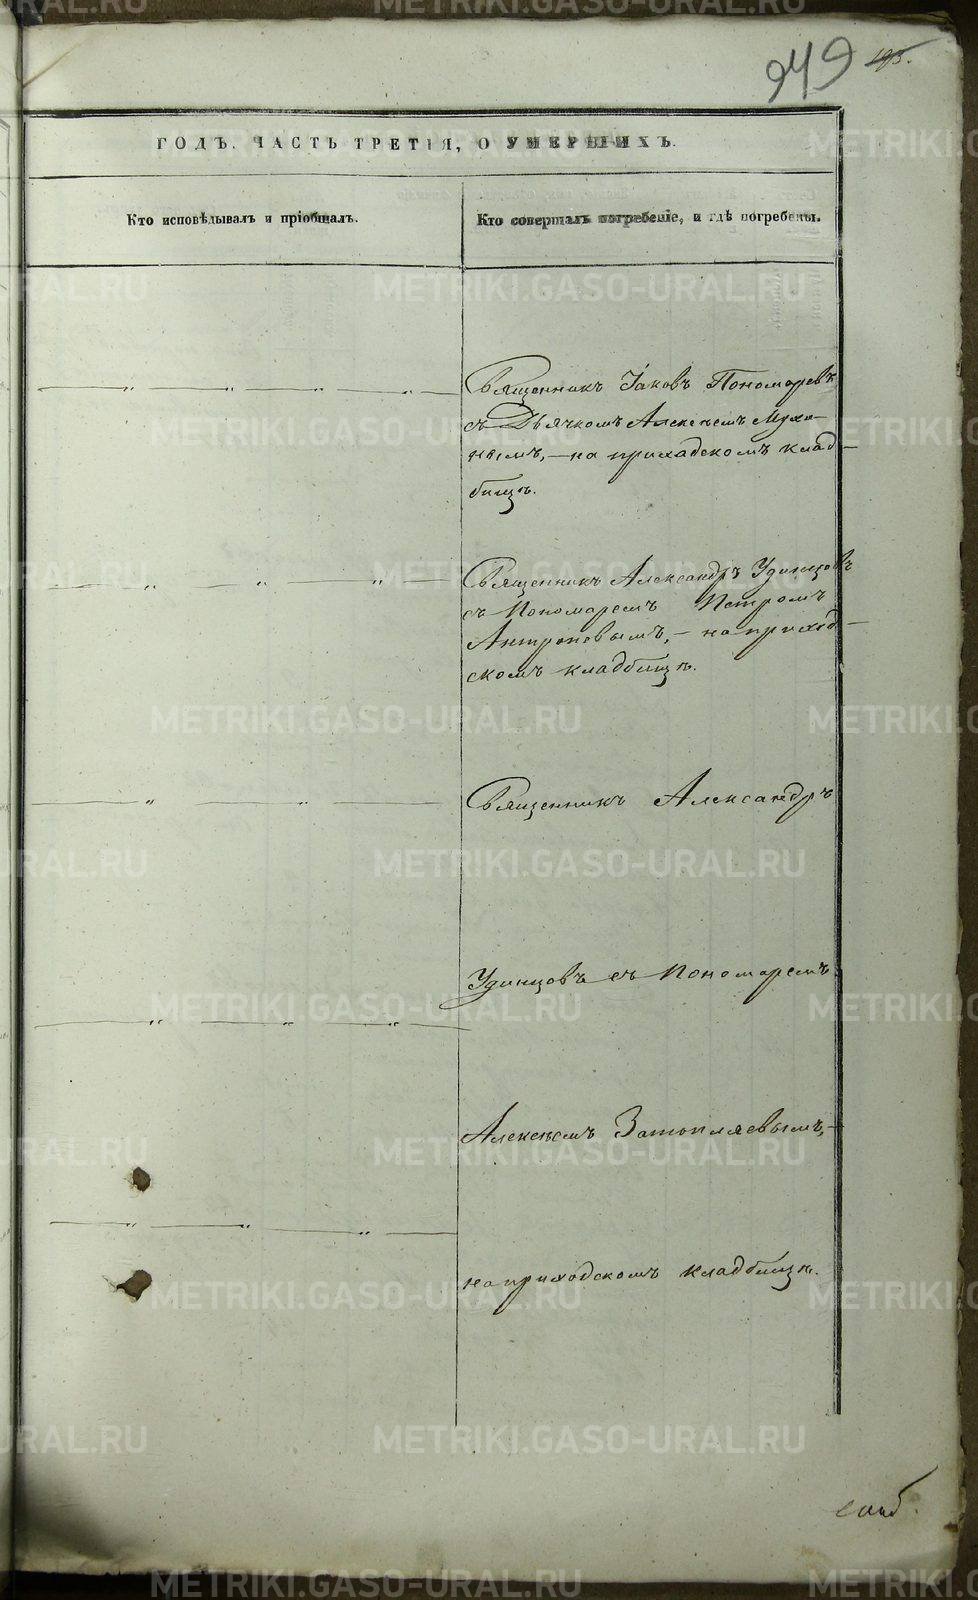 949 195.
ГОДЪ. ЧАСТЬ ТРЕТІЯ, О УМЕРШИХЪ.
Кто исповѣдывалъ и пріобщалъ.
Кто совершалъ погребеніе, и гдѣ погребены.
Священникъ Іаковъ Пономаревъ
съ Дьячкомъ Алексѣемъ Мухи-
нымъ, – на приходскомъ клад-
бищѣ.
Священникъ Александръ Удинцовъ
съ Пономаремъ Петромъ
Антроповымъ, – на приход-
скомъ кладбищѣ.
Священникъ Александръ
Удинцовъ съ Пономаремъ
Алексѣемъ Затопляевымъ, –
на приходскомъ кладбищѣ.
METRIKI.GASO-URAL.RU